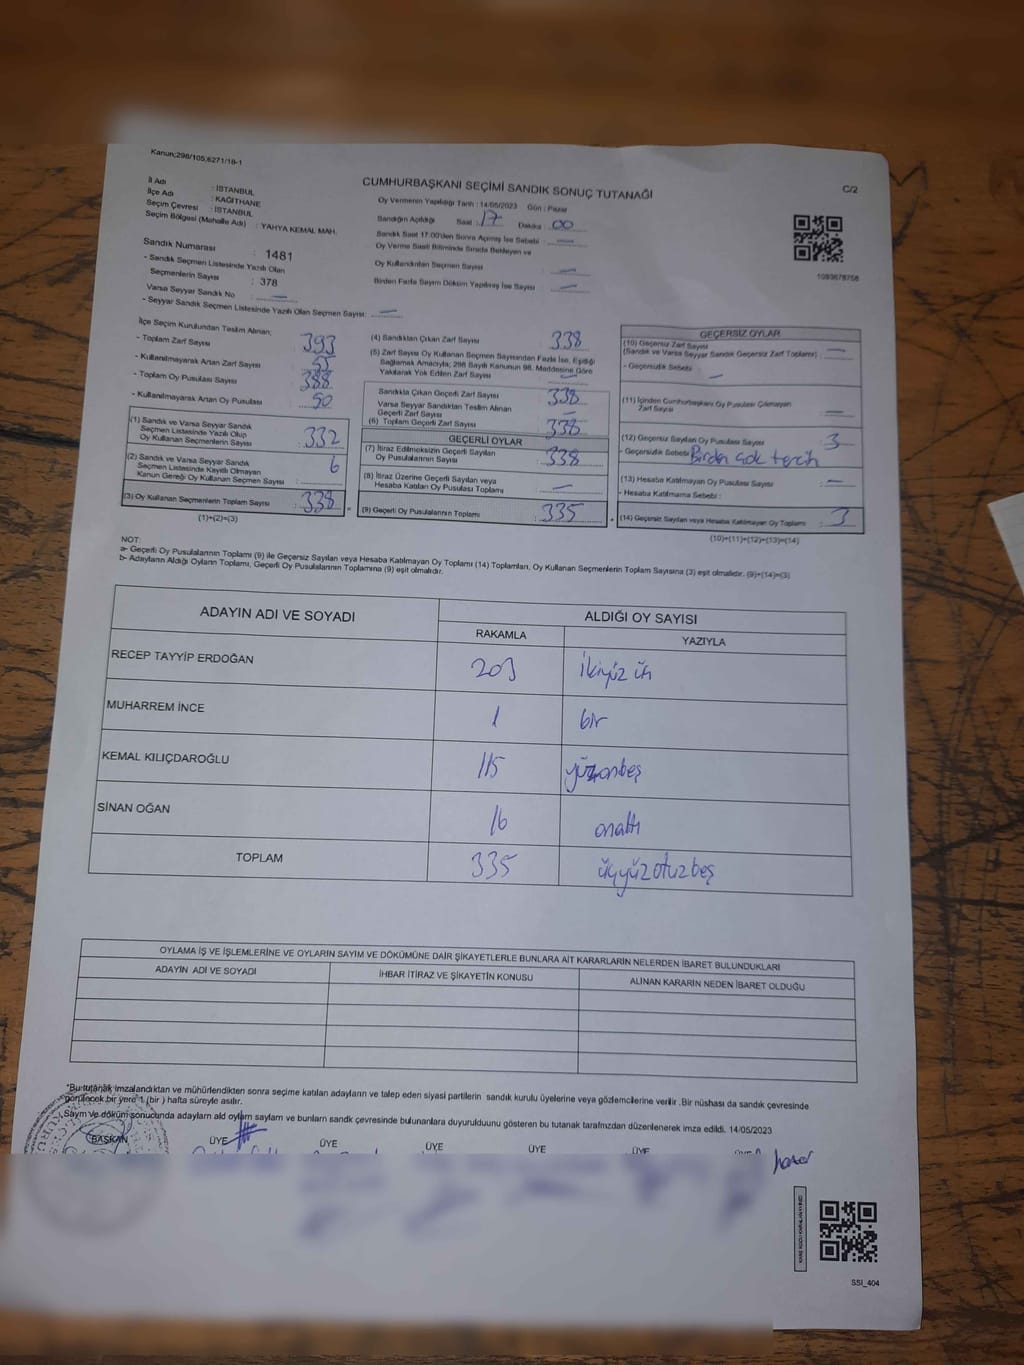 Kanun;298/105;6271/18-1
CUMHURBAŞKANI SEÇİMİ SANDIK SONUÇ TUTANAĞI
C/2
İl Adı : İSTANBUL
İlçe Adı : KAĞITHANE
Seçim Çevresi : İSTANBUL
Seçim Bölgesi (Mahalle Adı) : YAHYA KEMAL MAH.
Oy Vermenin Yapıldığı Tarih : 14/05/2023 Gün : Pazar
Sandığın Açıldığı Saat : 17 Dakika : 00
Sandık Saat 17:00'den Sonra Açılmış İse Sebebi : —
Oy Verme Saati Bitiminde Sırada Bekleyen ve
Oy Kullandırılan Seçmen Sayısı : —
Birden Fazla Sayım Döküm Yapılmış İse Sayısı : —
Sandık Numarası : 1481
- Sandık Seçmen Listesinde Yazılı Olan
Seçmenlerin Sayısı : 378
Varsa Seyyar Sandık No : —
- Seyyar Sandık Seçmen Listesinde Yazılı Olan Seçmen Sayısı: —
İlçe Seçim Kurulundan Teslim Alınan;
- Toplam Zarf Sayısı : 393
- Kullanılmayarak Artan Zarf Sayısı : 55
- Toplam Oy Pusulası Sayısı : 388
- Kullanılmayarak Artan Oy Pusulası : 50
(1) Sandık ve Varsa Seyyar Sandık
Seçmen Listesinde Yazılı Olup
Oy Kullanan Seçmenlerin Sayısı : 332
(2) Sandık ve Varsa Seyyar Sandık
Seçmen Listesinde Kayıtlı Olmayan
Kanun Gereği Oy Kullanan Seçmen Sayısı : 6
(3) Oy Kullanan Seçmenlerin Toplam Sayısı : 338
(1)+(2)=(3)
(4) Sandıktan Çıkan Zarf Sayısı : 338
(5) Zarf Sayısı Oy Kullanan Seçmen Sayısından Fazla İse, Eşitliği
Sağlamak Amacıyla; 298 Sayılı Kanunun 98. Maddesine Göre
Yakılarak Yok Edilen Zarf Sayısı : —
Sandıkta Çıkan Geçerli Zarf Sayısı : 338
Varsa Seyyar Sandıktan Teslim Alınan
Geçerli Zarf Sayısı : —
(6) Toplam Geçerli Zarf Sayısı : 338
GEÇERLİ OYLAR
(7) İtiraz Edilmeksizin Geçerli Sayılan
Oy Pusulalarının Sayısı : 338
(8) İtiraz Üzerine Geçerli Sayılan veya
Hesaba Katılan Oy Pusulası Toplamı : —
(9) Geçerli Oy Pusulalarının Toplamı : 335
1093678758
GEÇERSİZ OYLAR
(10) Geçersiz Zarf Sayısı
(Sandık ve Varsa Seyyar Sandık Geçersiz Zarf Toplamı) : —
- Geçersizlik Sebebi : —
(11) İçinden Cumhurbaşkanı Oy Pusulası Çıkmayan
Zarf Sayısı : —
(12) Geçersiz Sayılan Oy Pusulası Sayısı : 3
- Geçersizlik Sebebi Birden çok tercih
(13) Hesaba Katılmayan Oy Pusulası Sayısı : —
- Hesaba Katılmama Sebebi :
(14) Geçersiz Sayılan veya Hesaba Katılmayan Oy Toplamı : 3
(10)+(11)+(12)+(13)=(14)
NOT:
a- Geçerli Oy Pusulalarının Toplamı (9) ile Geçersiz Sayılan veya Hesaba Katılmayan Oy Toplamı (14) Toplamları, Oy Kullanan Seçmenlerin Toplam Sayısına (3) eşit olmalıdır. (9)+(14)=(3)
b- Adayların Aldığı Oyların Toplamı, Geçerli Oy Pusulalarının Toplamına (9) eşit olmalıdır.
ADAYIN ADI VE SOYADI ALDIĞI OY SAYISI
RAKAMLA YAZIYLA
RECEP TAYYİP ERDOĞAN 203 ikiyüz üç
MUHARREM İNCE 1 bir
KEMAL KILIÇDAROĞLU 115 yüzonbeş
SİNAN OĞAN 16 onaltı
TOPLAM 335 üçyüzotuzbeş
OYLAMA İŞ VE İŞLEMLERİNE VE OYLARIN SAYIM VE DÖKÜMÜNE DAİR ŞİKAYETLERLE BUNLARA AİT KARARLARIN NELERDEN İBARET BULUNDUKLARI
ADAYIN ADI VE SOYADI İHBAR İTİRAZ VE ŞİKAYETİN KONUSU ALINAN KARARIN NEDEN İBARET OLDUĞU
*Bu tutanak imzalandıktan ve mühürlendikten sonra seçime katılan adayların ve talep eden siyasi partilerin sandık kurulu üyelerine veya gözlemcilerine verilir .Bir nüshası da sandık çevresinde
görülecek bir yere 1 (bir ) hafta süreyle asılır.
Sayım ve döküm sonucunda adayların ald oyların sayları ve bunların sandık çevresinde bulunanlara duyurulduunu gösteren bu tutanak tarafımzdan düzenlenerek imza edildi. 14/05/2023
BAŞKAN ÜYE ÜYE ÜYE ÜYE ÜYE
SSI_404